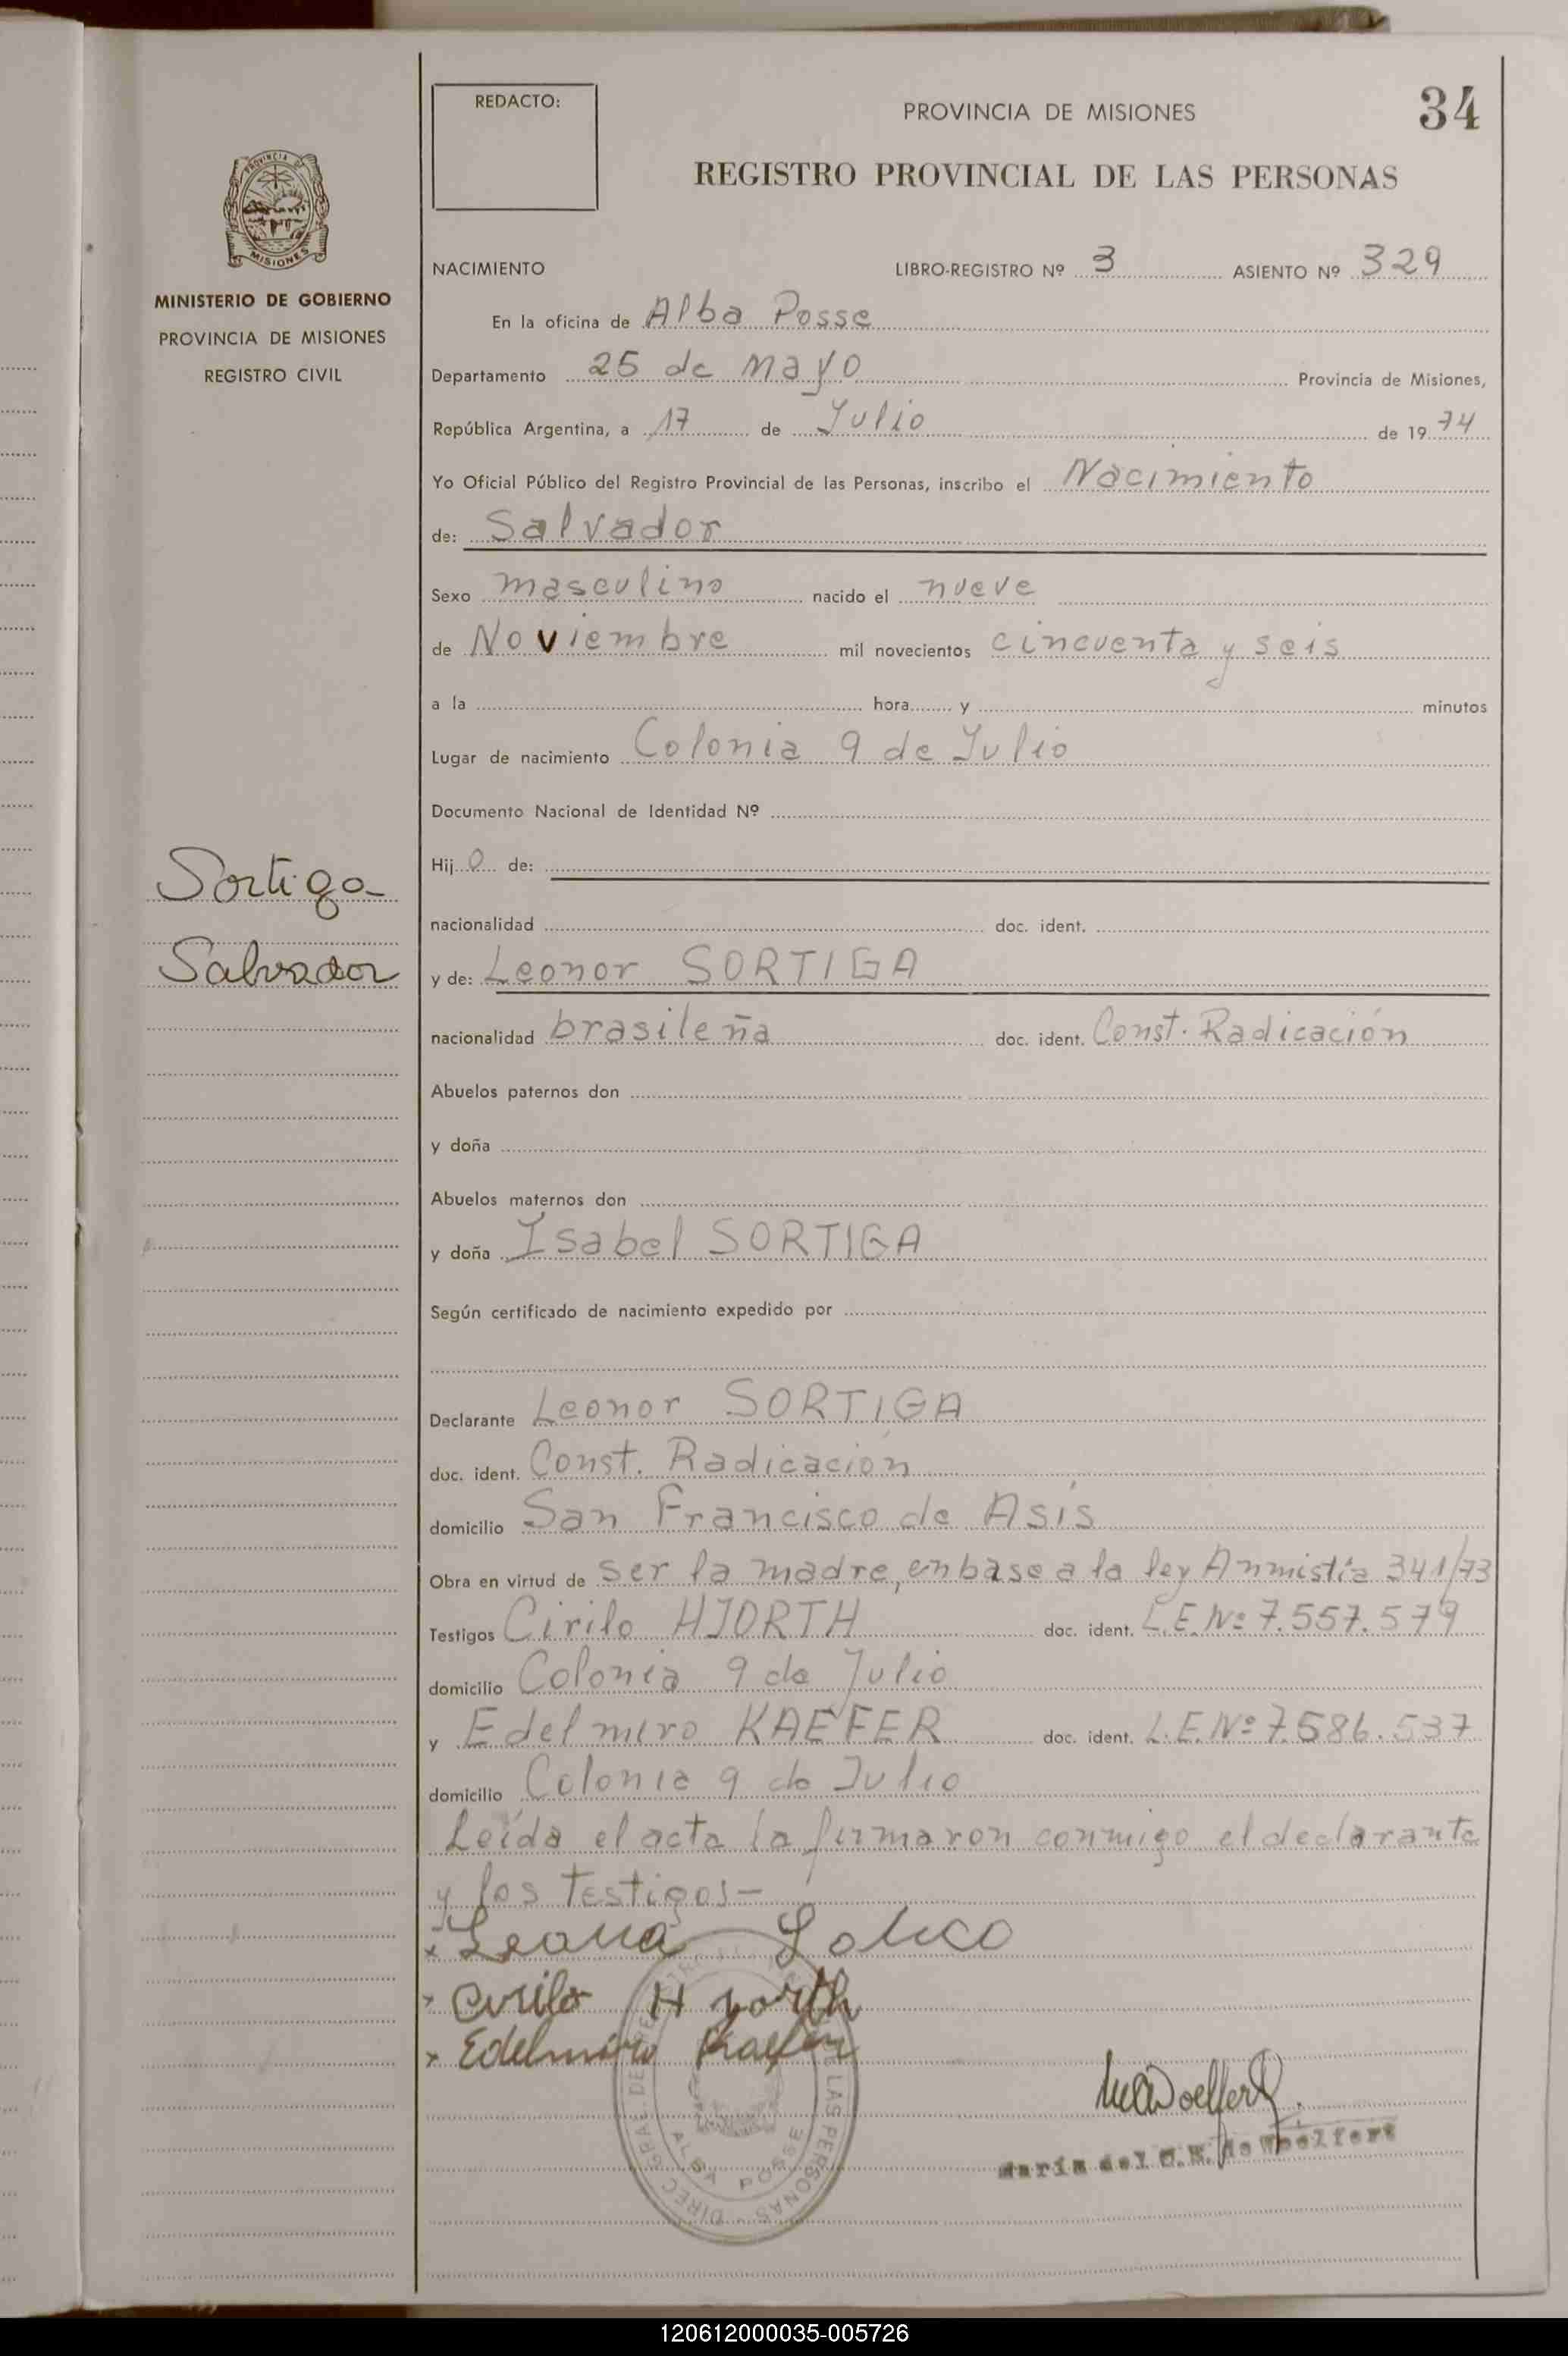 REDACTO:
PROVINCIA DE MISIONES
34
REGISTRO PROVINCIAL DE LAS PERSONAS
PROVINCIA DE
MISIONES
MINISTERIO DE GOBIERNO
PROVINCIA DE MISIONES
REGISTRO CIVIL
NACIMIENTO LIBRO-REGISTRO Nº 3 ASIENTO Nº 329
En la oficina de Alba Posse
Departamento 25 de Mayo Provincia de Misiones,
República Argentina, a 17 de Julio de 1974
Yo Oficial Público del Registro Provincial de las Personas, inscribo el Nacimiento
de: Salvador
Sexo masculino nacido el nueve
de Noviembre mil novecientos cincuenta y seis
a la hora y minutos
Lugar de nacimiento Colonia 9 de Julio
Documento Nacional de Identidad Nº
Hijo de:
Sortiga
Salvador
nacionalidad doc. ident.
y de: Leonor SORTIGA
nacionalidad brasileña doc. ident. Const. Radicación
Abuelos paternos don
y doña
Abuelos maternos don
y doña Isabel SORTIGA
Según certificado de nacimiento expedido por
Declarante Leonor SORTIGA
doc. ident. Const. Radicación
domicilio San Francisco de Asís
Obra en virtud de ser la madre, en base a la ley Anmistía 341/73
Testigos Cirilo HJORTH doc. ident. L.E.Nº 7.557.579
domicilio Colonia 9 de Julio
y Edelmiro KAEFER doc. ident. L.E.Nº 7.586.537
domicilio Colonia 9 de Julio
Leída el acta la firmaron conmigo el declarante
y los testigos-
x
x Cirilo Hjorth
x Edelmiro Kaefer
DIREC. GRAL. DE LAS PERSONAS
ALBA POSSE
María del C. de Woelfert
120612000035-005726